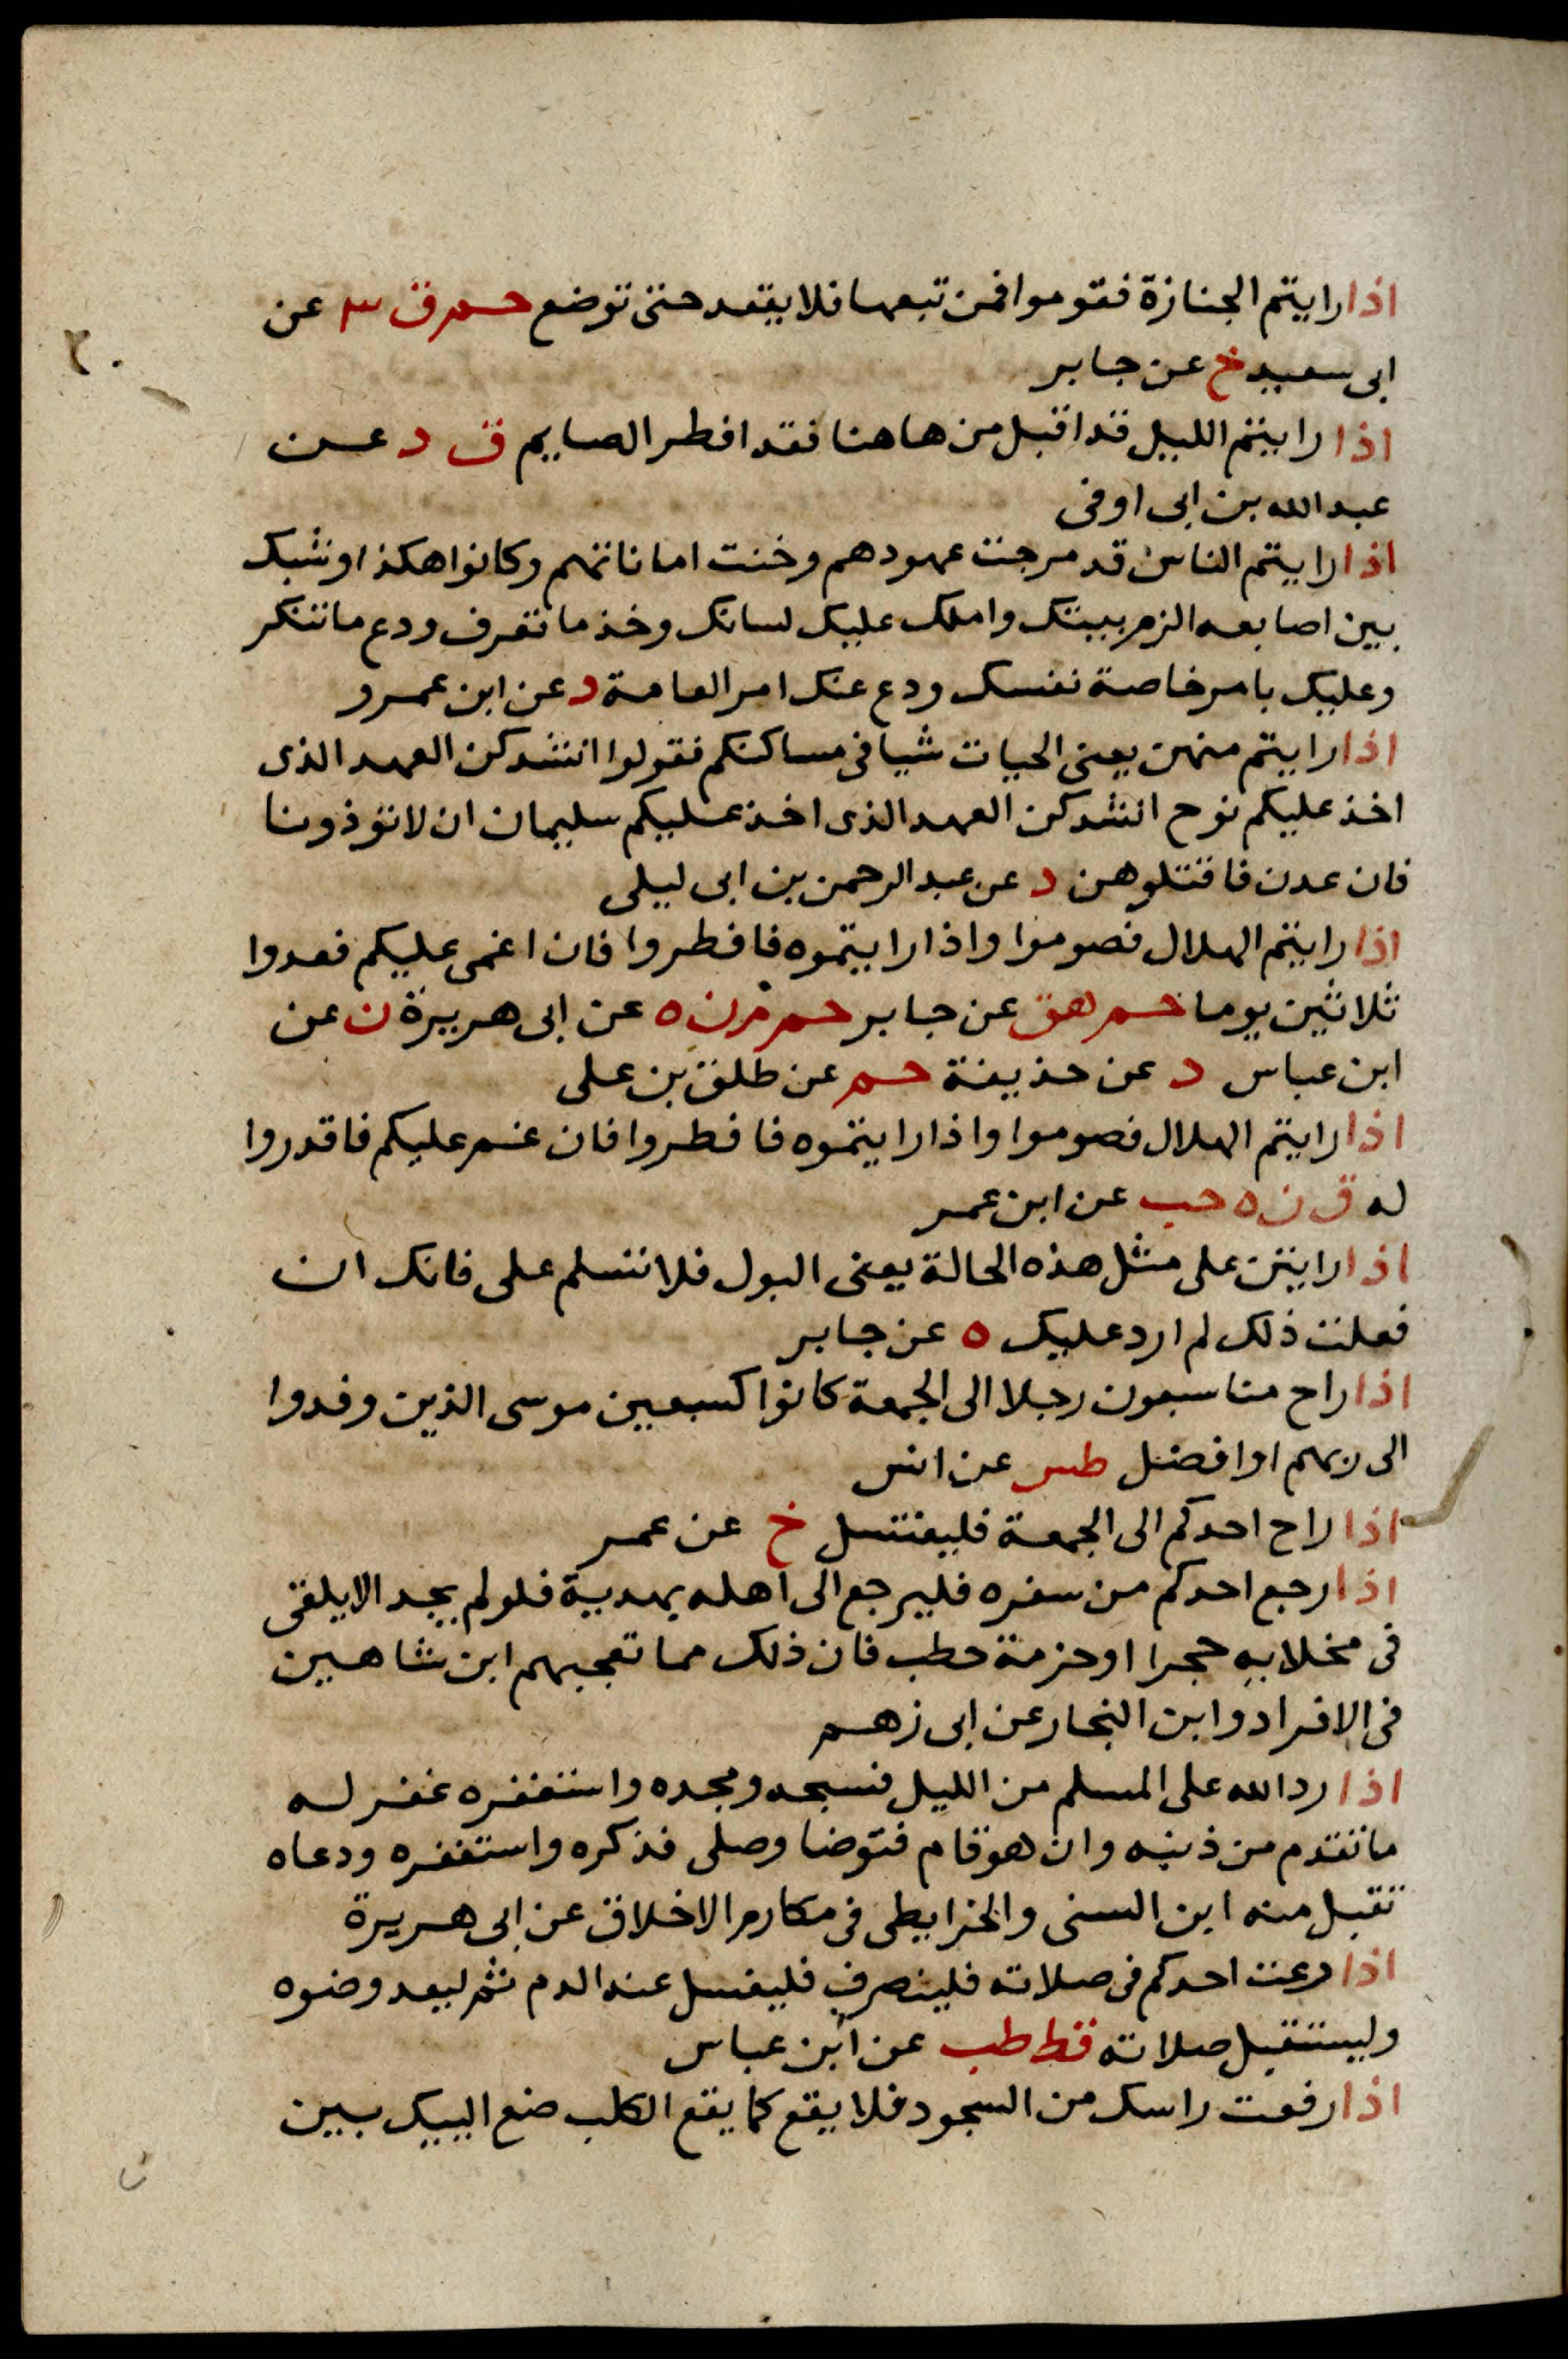 اذا رايتم الجنازة فقوموا فمن تبعها فلا يقعد حتى توضع حم ق ٣ عن
ابى سعيد خ عن جابر
اذا رايتم الليل قد اقبل من هاهنا فقد افطر الصايم ق د عن
عبد الله بن ابى اوفى
اذا رايتم الناس قد مرجت عهودهم وخنت اماناتهم وكانوا هكذا وشبك
بين اصابعه الزم بيتك واملك عليك لسانك وخذ ما تعرف ودع ما تنكر
وعليك بامر خاصة نفسك ودع عنك امر العامة د عن ابن عمرو
اذا رايتم منهن يعنى الحيات شيا فى مساكنكم فقولوا انشدكن العهد الذى
اخذ عليكم نوح انشدكن العهد الذى اخذ عليكم سليمان ان لا توذونا
فان عدن فاقتلوهن د عن عبد الرحمن بن ابى ليلى
اذا رايتم الهلال فصوموا واذا رايتموه فافطروا فان اغمى عليكم فعدوا
ثلاثين يوما حم هق عن جابر حم م ن ه عن ابى هريرة ن عن
ابن عباس د عن حذيفة حم عن طلق بن على
اذا رايتم الهلال فصوموا واذا رايتموه فافطروا فان غم عليكم فاقدروا
له ق ن ه حب عن ابن عمر
اذا رايتن على مثل هذه الحالة يعنى البول فلا تسلم على فانك ان
فعلت ذلك لم ارد عليك ه عن جابر
اذا راح منا سبعون رجلا الى الجمعة كانوا كسبعين موسى الذين وفدوا
الى ربهم او افضل طس عن انس
اذا راح احدكم الى الجمعة فليغتسل خ عن عمر
اذا رجع احدكم من سفره فليرجع الى اهله بهدية فلو لم يجد الا يلقى
فى مخلابه حجرا او حزمة حطب فان ذلك مما تعجبهم ابن شاهين
فى الافراد وابن النجار عن ابى زهم
اذا رد الله على المسلم من الليل فسبحه ومجده واستغفره غفر له
ما تقدم من ذنبه وان هو قام فتوضا وصلى فذكره واستغفره ودعاه
تقبل منه ابن السنى والخرايطى فى مكارم الاخلاق عن ابى هريرة
اذا رعت احدكم فى صلاته فلينصرف فليغسل عنه الدم ثم ليعد وضوه
وليستقبل صلاته قط طب عن ابن عباس
اذا رفعت راسك من السجود فلا يقع كما يقع الكلب ضع اليبيك بين
٢٠